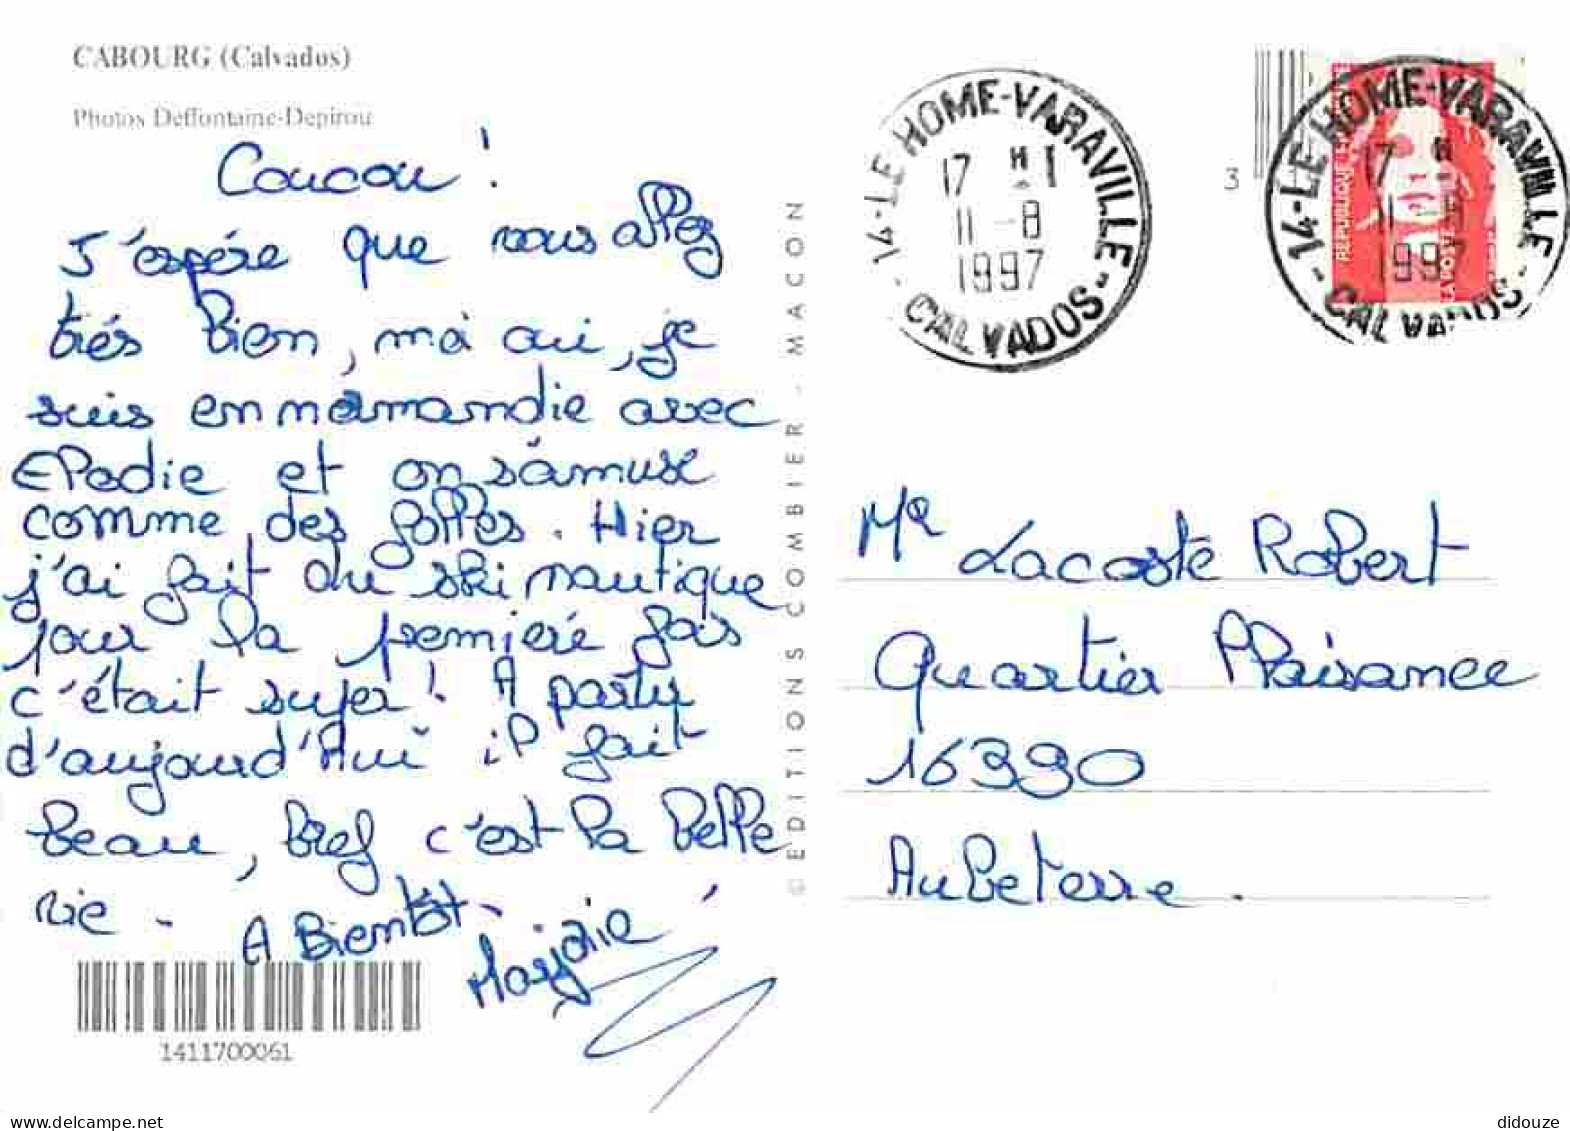 CABOURG (Calvados)
Photos Deffontaine-Depirou
Coucou !
J'espére que vous allez
trés bien, moi oui, je
suis en normandie avec
Elodie et on s'amuse
comme des folles. Hier
j'ai fait du ski nautique
pour la premiere fois
c'était super ! A partir
d'aujourd'hui il fait
beau, bref c'est la belle
vie.
A Bientôt.
Marjorie
1411700061
© EDITIONS COMBIER - MACON
14-LE HOME-VARAVILLE
17 H 1
11-8
1997
- CALVADOS -
3
REPUBLIQUE
LA POSTE
14-LE HOME-VARAVILLE
17 H
11
1997
- CALVADOS -
Mr Lacoste Robert
Quartier Plaisance
16390
Aubeterre.
didouze